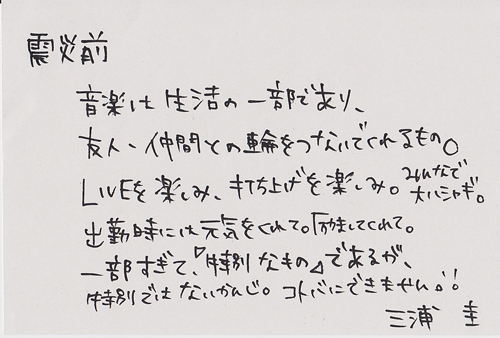 震災前
音楽は生活の一部であり、
友人、仲間との輪をつないでくれるもの。
LIVEを楽しみ、打ち上げを楽しみ。みんなで大ハシャギ。
出勤時には元気をくれて。励ましてくれて。
一部すぎて、『特別なもの』であるが、
特別ではないかんじ。コトバにできません!!
三浦 圭